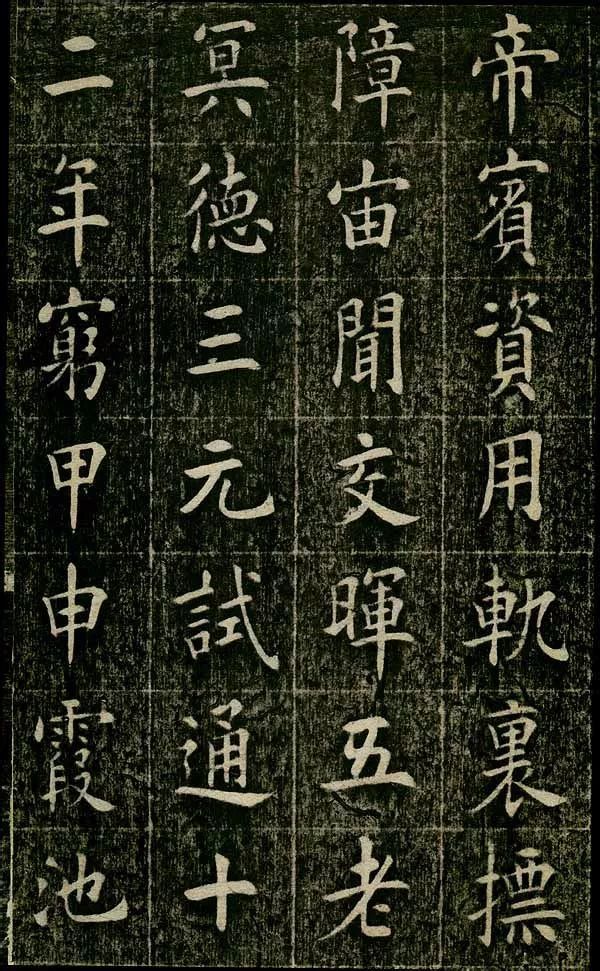 帝賓資用軌裏摽
障宙聞交暉五老
冥德三元試通十
二年窮甲申霞池